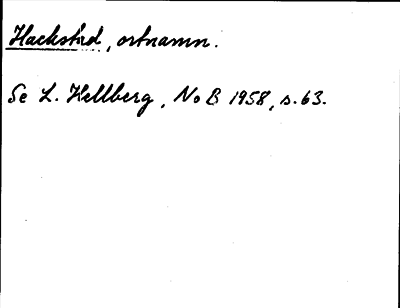 Hackstad, ortnamn.
Se L. Hellberg, NoB 1958, s. 63.